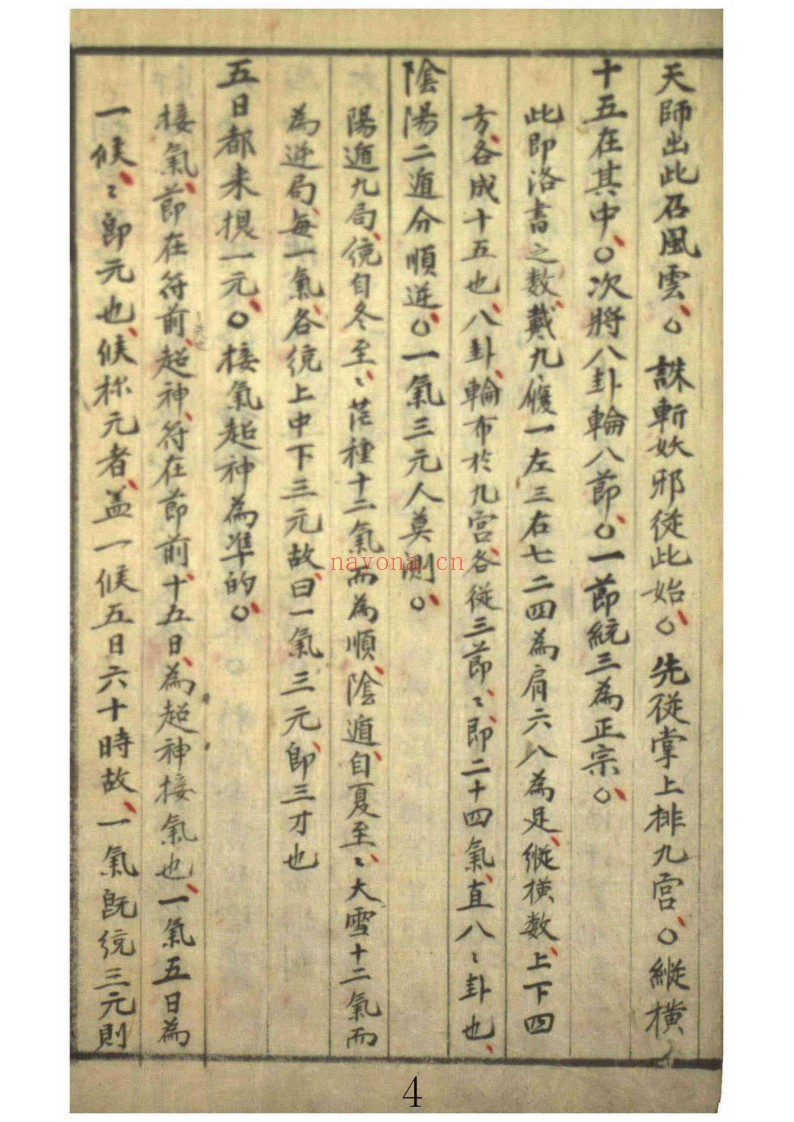 天師出此召風雲、○誅斬妖邪從此始、○先從掌上排九宮、○縱橫
十五在其中、○次將八卦輪八節、○一節統三為正宗、○
此即洛書之数、戴九、履一左三右七二四為肩六八為足、縱橫数、上下四
方、各成十五也、八卦、輪布於九宮、各從三節、〻、即二十四氣、直八〻卦也、
陰陽二遁分順逆、○一氣三元人莫測、○
陽遁九局、統自冬至、〻茫種十二氣而為順、陰遁、自夏至、〻大雪十二氣而
為逆局、每一氣、各統上中下三元故、曰一氣三元即三才也
五日都来換一元、○接氣超神為準的、○
接氣、節在符前、超神、符在節前、十五日、為超神接氣也、一氣五日為
一候、〻即元也、候称元者、盖一候五日六十時故、一氣既統三元則
nayona.cn
4